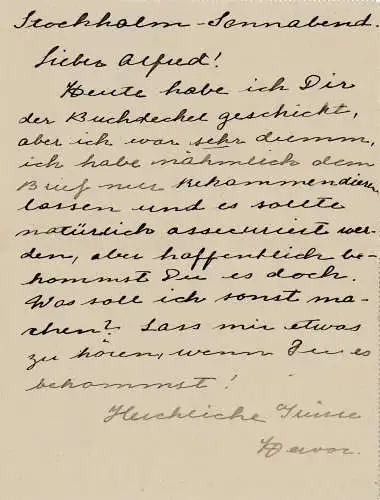 Stockholm - Sonnabend.
Lieber Alfred!
Heute habe ich Dir
der Buchdeckel geschickt,
aber ich war sehr dumm,
ich habe nähmlich dem
Brief nur Rekommendieren
lassen und es sollte
natürlich assecuriert wer-
den, aber hoffentlich be-
kommst Du es doch.
Was soll ich sonst ma-
chen? Lass mir etwas
zu hören, wenn Du es
bekommst!
Herchliche Grüsse